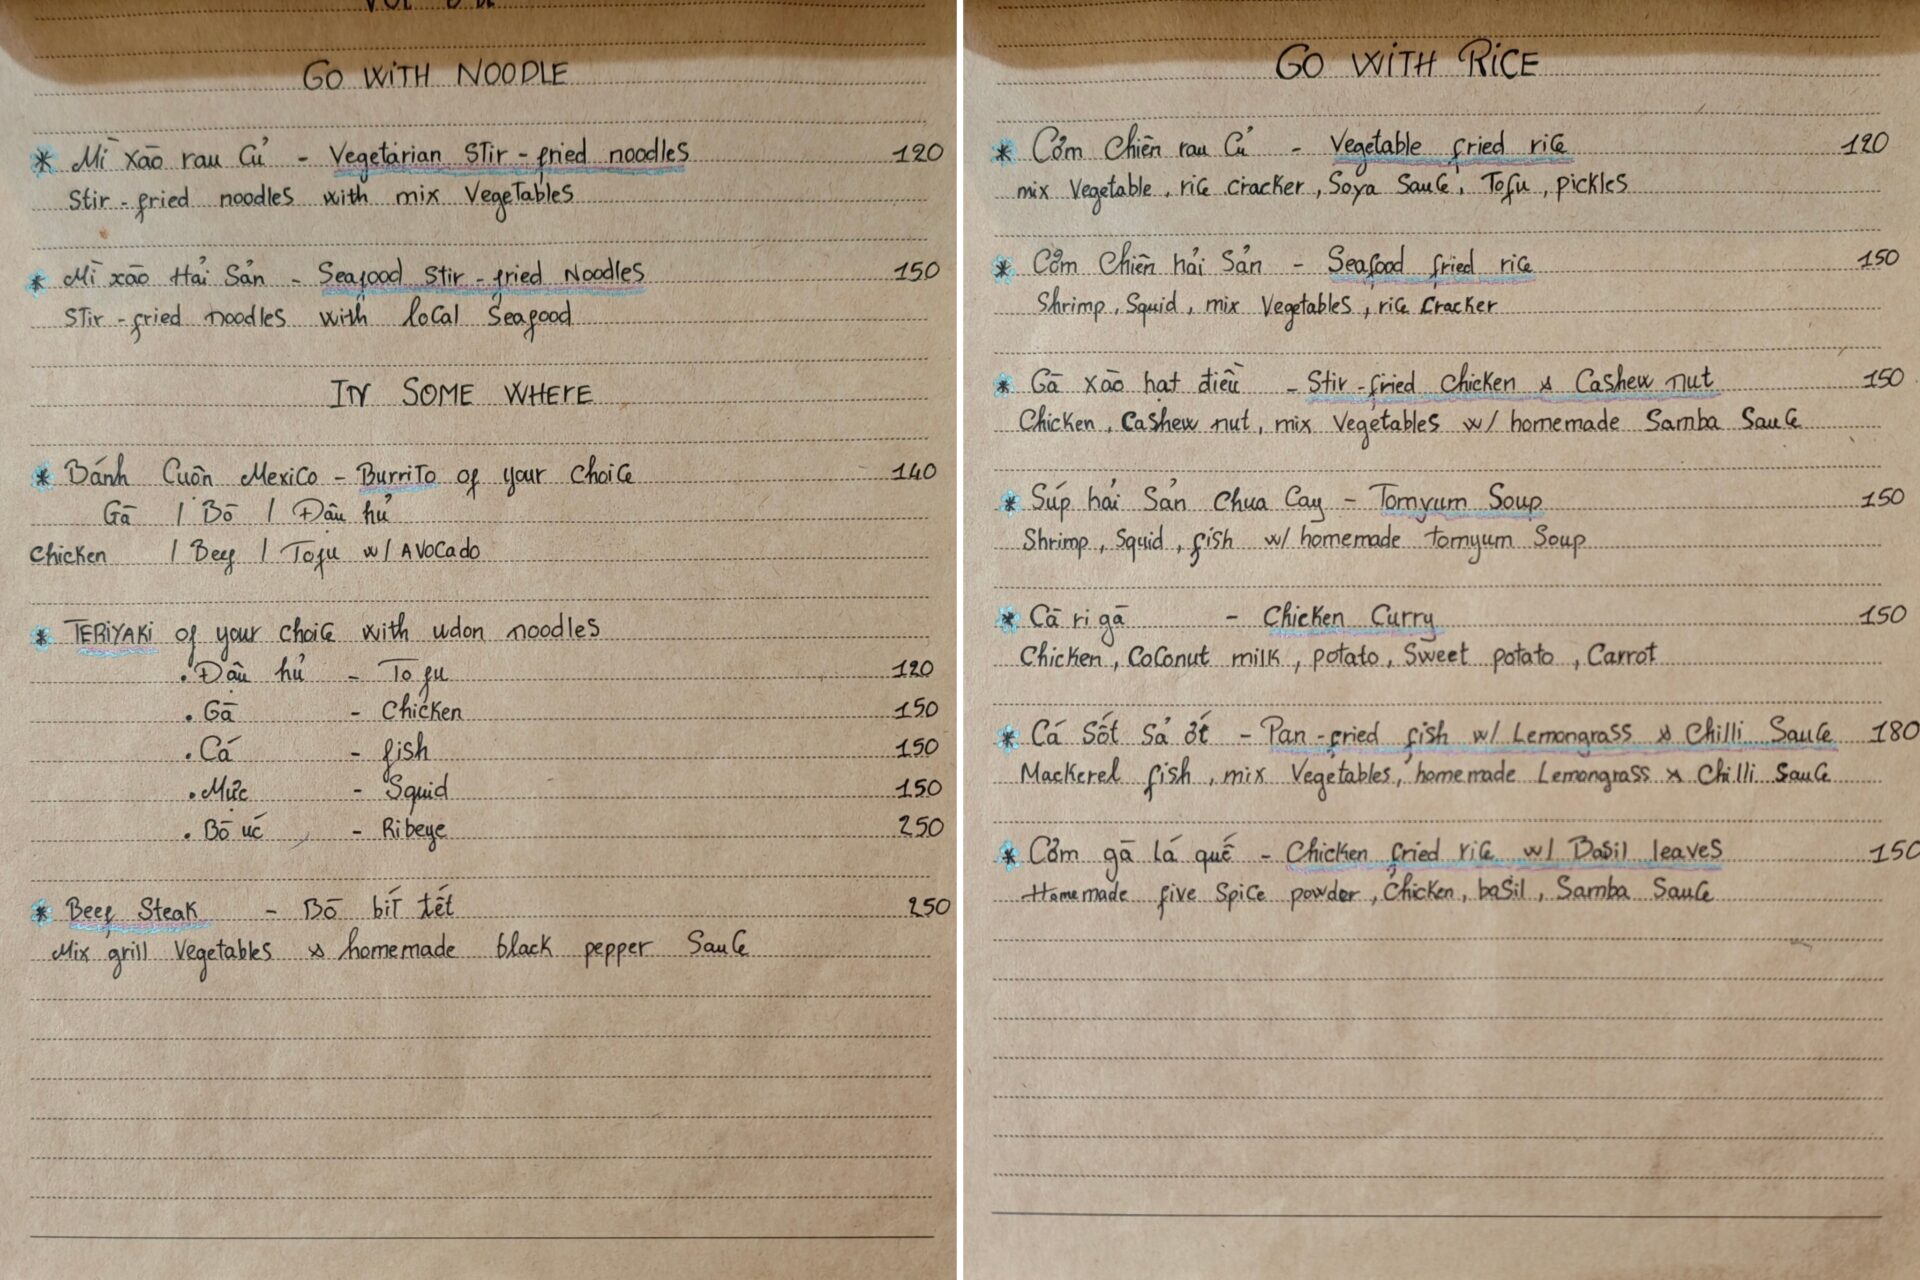 GO WITH NOODLE
* Mì xào rau củ - Vegetarian Stir-fried noodles 120
Stir-fried noodles with mix Vegetables
* Mì xào Hải Sản - Seafood Stir-fried Noodles 150
Stir-fried noodles with local Seafood
IN SOME WHERE
* Bánh Cuốn Mexico - Burrito of your choice 140
Gà / Bò / Đậu hủ
Chicken / Beef / Tofu w/ AVOCado
* TERIYAKI of your choice with udon noodles
. Đậu hủ - Tofu 120
. Gà - Chicken 150
. Cá - fish 150
. Mực - Squid 150
. Bò úc - Ribeye 250
* Beef Steak - Bò bít tết 250
Mix grill Vegetables & homemade black pepper Sauce
GO WITH RICE
* Cơm Chiên rau Củ - Vegetable fried rice 120
mix Vegetable, rice cracker, Soya Sauce, Tofu, pickles
* Cơm Chiên hải Sản - Seafood fried rice 150
Shrimp, Squid, mix Vegetables, rice Cracker
* Gà xào hạt điều - Stir-fried chicken & Cashew nut 150
Chicken, Cashew nut, mix Vegetables w/ homemade Samba Sauce
* Súp hải Sản Chua Cay - Tomyum Soup 150
Shrimp, Squid, fish w/ homemade tomyum Soup
* Cà ri gà - Chicken Curry 150
Chicken, Coconut milk, potato, Sweet potato, Carrot
* Cá Sốt Sả ớt - Pan-fried fish w/ Lemongrass & Chilli Sauce 180
Mackerel fish, mix Vegetables, homemade Lemongrass & Chilli Sauce
* Cơm gà lá quế - Chicken fried rice w/ Basil leaves 150
Homemade five Spice powder, Chicken, basil, Samba Sauce